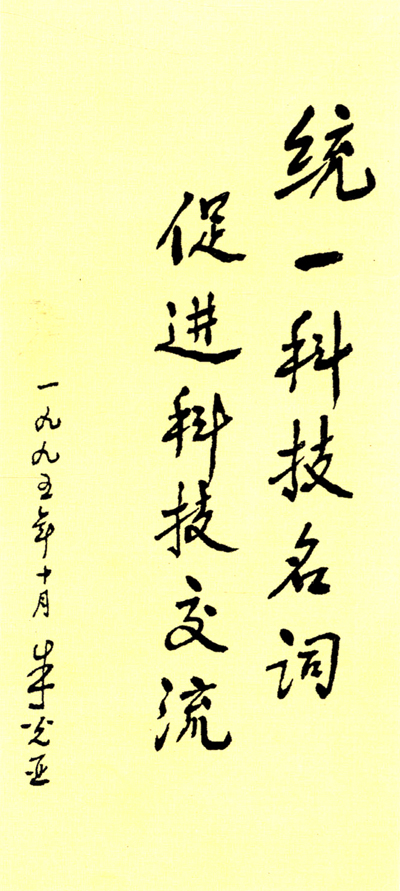 统一科技名词
促进科技交流
一九九五年十月 朱光亚